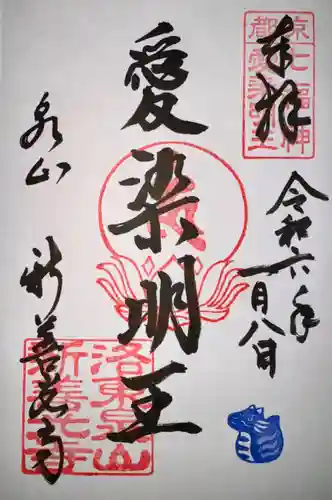 奉拝
令和六年
一月八日
愛染明王
泉山
新善光寺
洛東泉山
新善光寺